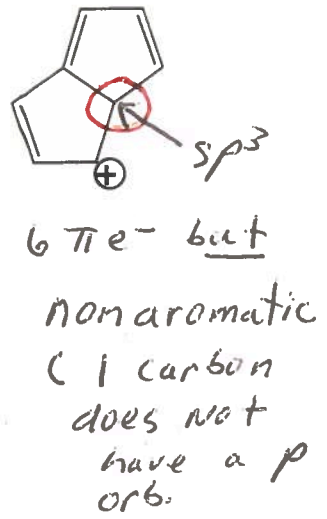 +
sp³
6 π e⁻ but
nonaromatic
( 1 carbon
does not
have a p
orb.